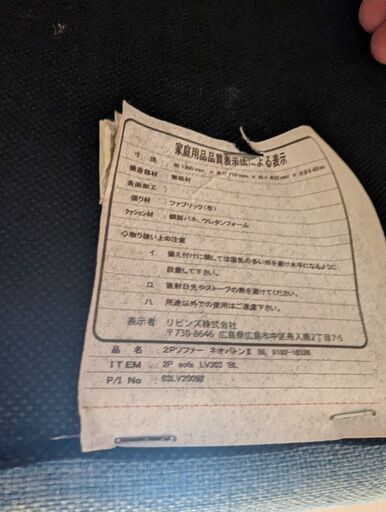 家庭用品品質表示法による表示
寸法 : 約 1300mm × 奥行 710mm × 高さ
構造部材 : 無垢材
表面加工 :
張り材 : ファブリック(布)
クッション材 : 鋼製バネ、ウレタンフォーム
◇取り扱い上の注意
イ. 備え付けに関しては湿気の多い所を避け水平になるように
設置して下さい。
ロ. 直射日光やストーブの熱を避けてください。
ハ. 用途以外での使用はご遠慮下さい。
表示者 リビンズ株式会社
〒730-8646 広島県広島市中区舟入南2丁目7-5
品名 : 2Pソファー ネオバトンⅡ BL 9192-
ITEM : 2P sofa LV302 BL
P/I No : 03LV20092